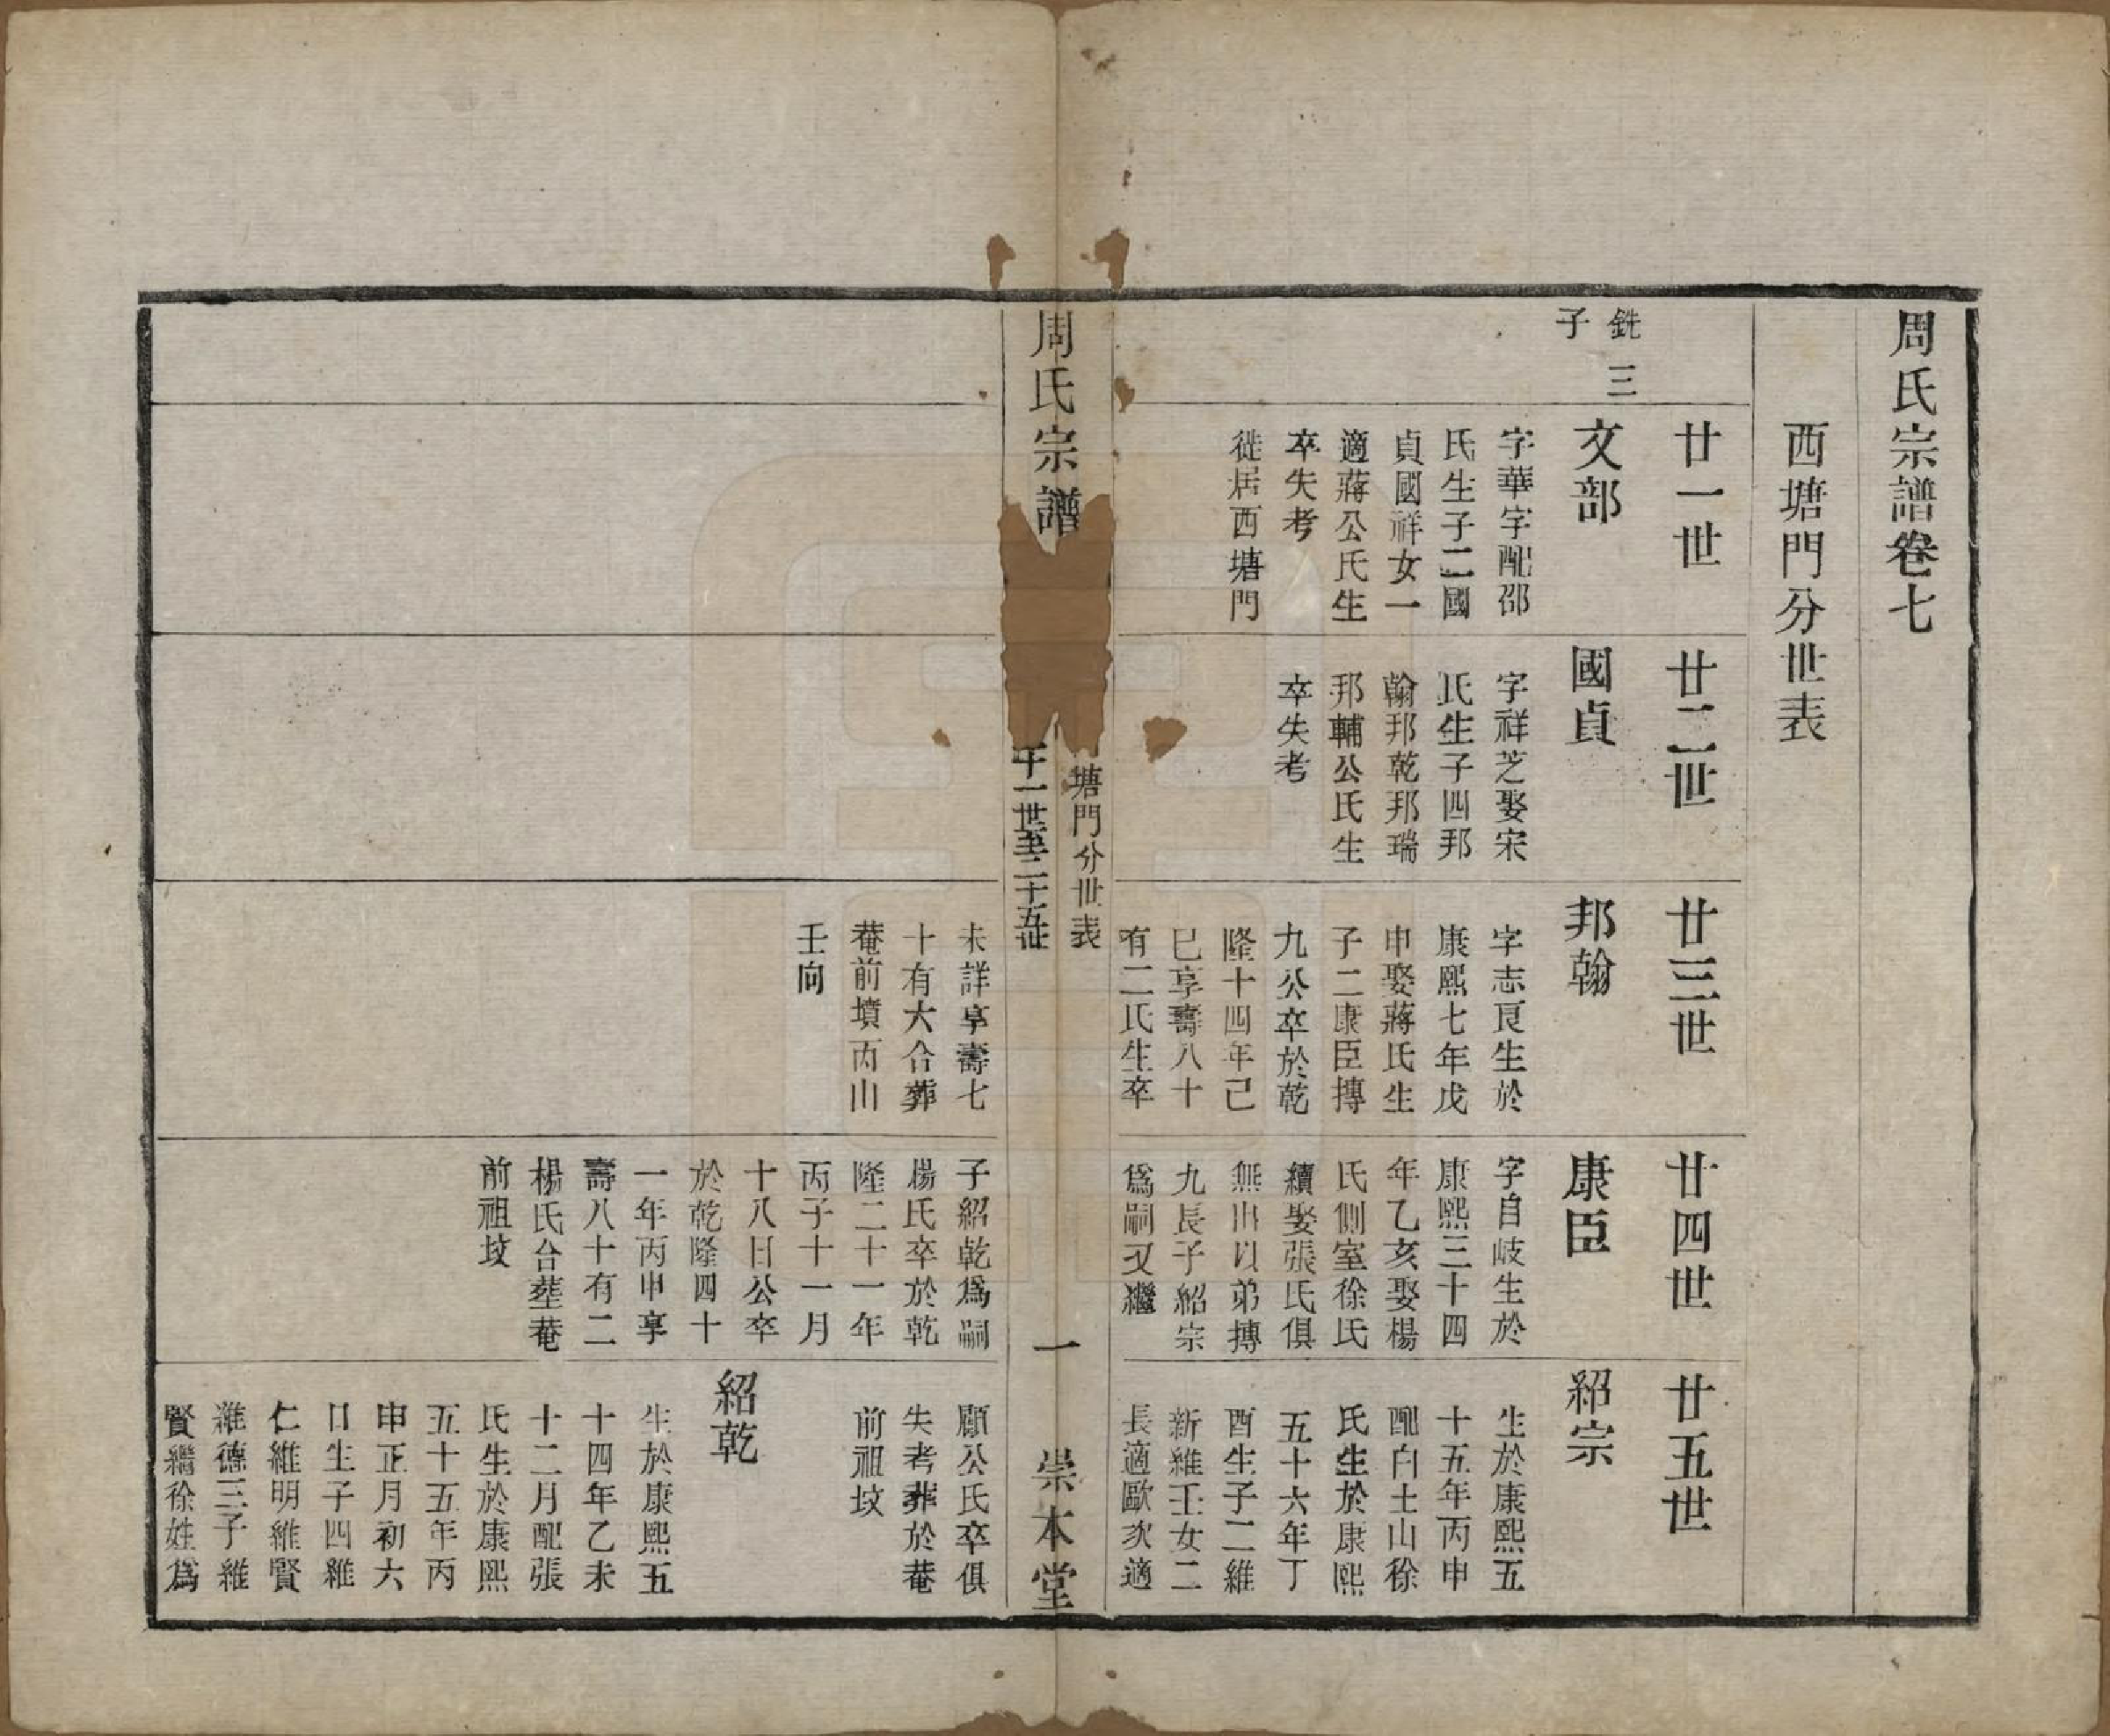 周氏宗譜卷七
西塘門分世表
銑三
子
廿一世
文部
字華宇配邵
氏生子二國
貞國祥女一
適蔣公氏生
卒失考
徙居西塘門
廿二世
國貞
字祥芝娶宋
氏生子四邦
翰邦乾邦瑞
邦輔公氏生
卒失考
廿三世
邦翰
字志良生於
康熙七年戊
申娶蔣氏生
子二康臣摶
九公卒於乾
隆十四年己
巳享壽八十
有二氏生卒
未詳享壽七
十有六合葬
菴前墳丙山
壬向
廿四世
康臣
字自岐生於
康熙三十四
年乙亥娶楊
氏側室徐氏
續娶張氏俱
無出以弟摶
九長子紹宗
為嗣又繼
子紹乾為嗣
楊氏卒於乾
隆二十一年
丙子十一月
十八日公卒
於乾隆四十
一年丙申享
壽八十有二
楊氏合塟菴
前祖坟
廿五世
紹宗
生於康熙五
十五年丙申
配白土山徐
氏生於康熙
五十六年丁
酉生子二維
新維壬女二
長適歐次適
顧公氏卒俱
失考葬於菴
前祖坟
紹乾
生於康熙五
十四年乙未
十二月配張
氏生於康熙
五十五年丙
申正月初六
日生子四維
仁維明維賢
維德三子維
賢繼徐姓為
周氏宗譜
塘門分世表
十一世至二十五世
一
崇本堂